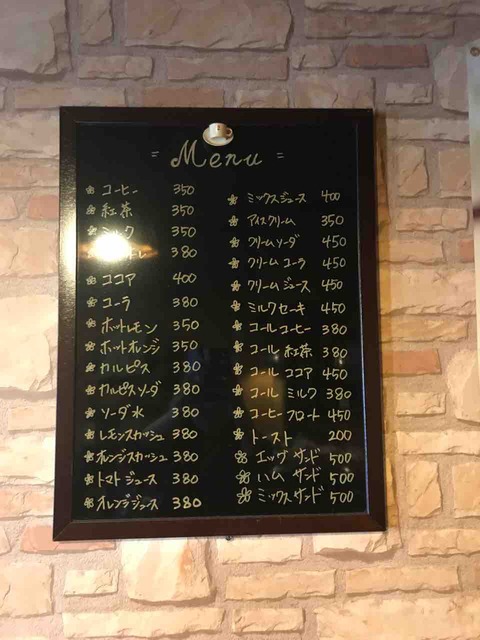 = Menu =
コーヒー 350
紅茶 350
ミルク 350
オレ 380
ココア 400
コーラ 380
ホットレモン 350
ホットオレンジ 350
カルピス 380
カルピスソーダ 380
ソーダ水 380
レモンスカッシュ 380
オレンジスカッシュ 380
トマトジュース 380
オレンジジュース 380
ミックスジュース 400
アイスクリーム 350
クリームソーダ 450
クリームコーラ 450
クリームジュース 450
ミルクセーキ 450
コールコーヒー 380
コール紅茶 380
コールココア 450
コールミルク 380
コーヒーフロート 450
トースト 200
エッグサンド 500
ハムサンド 500
ミックスサンド 500